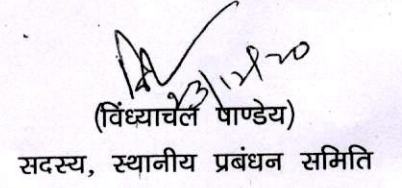 (विंध्याचल पाण्डेय)
सदस्य, स्थानीय प्रबंधन समिति